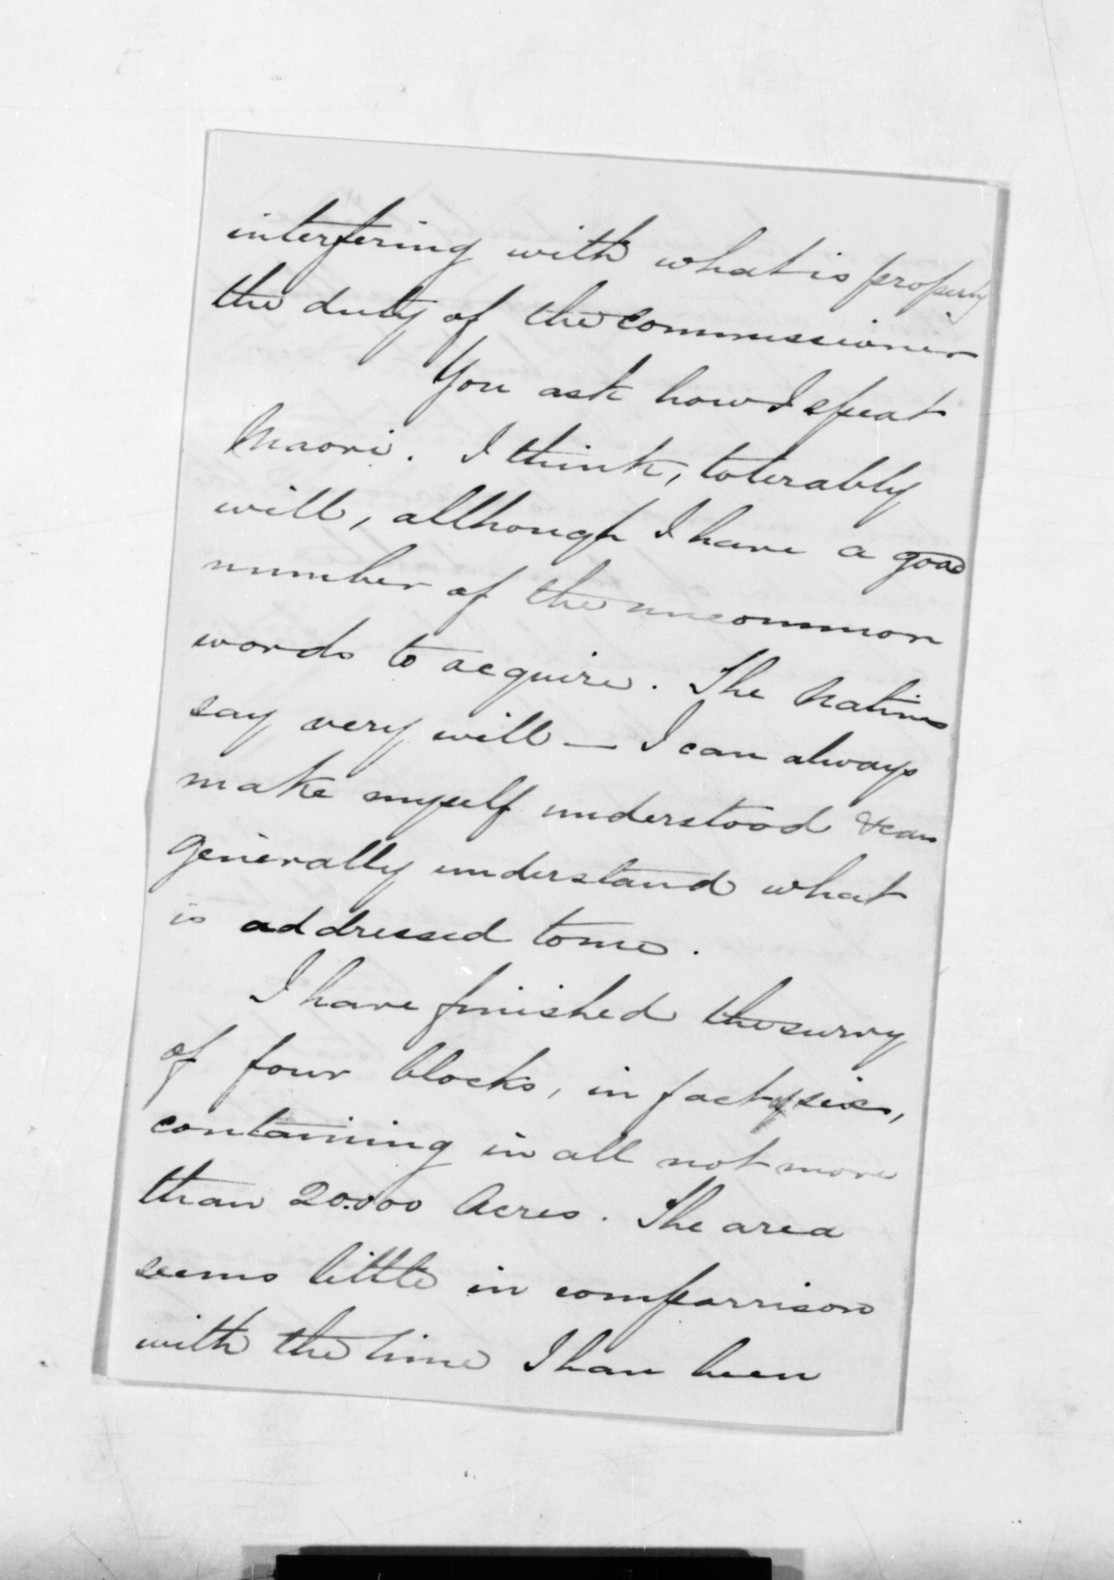 interfering with what is properly
the duty of the commissioner
You ask how I speak
Maori. I think, tolerably
well, although I have a good
number of the uncommon
words to acquire. The Natives
say very well — I can always
make myself understood & can
generally understand what
is addressed to me.
I have finished the survey
of four blocks, in fact six,
containing in all not more
than 20.000 Acres. The area
seems little in comparrison
with the time I have been